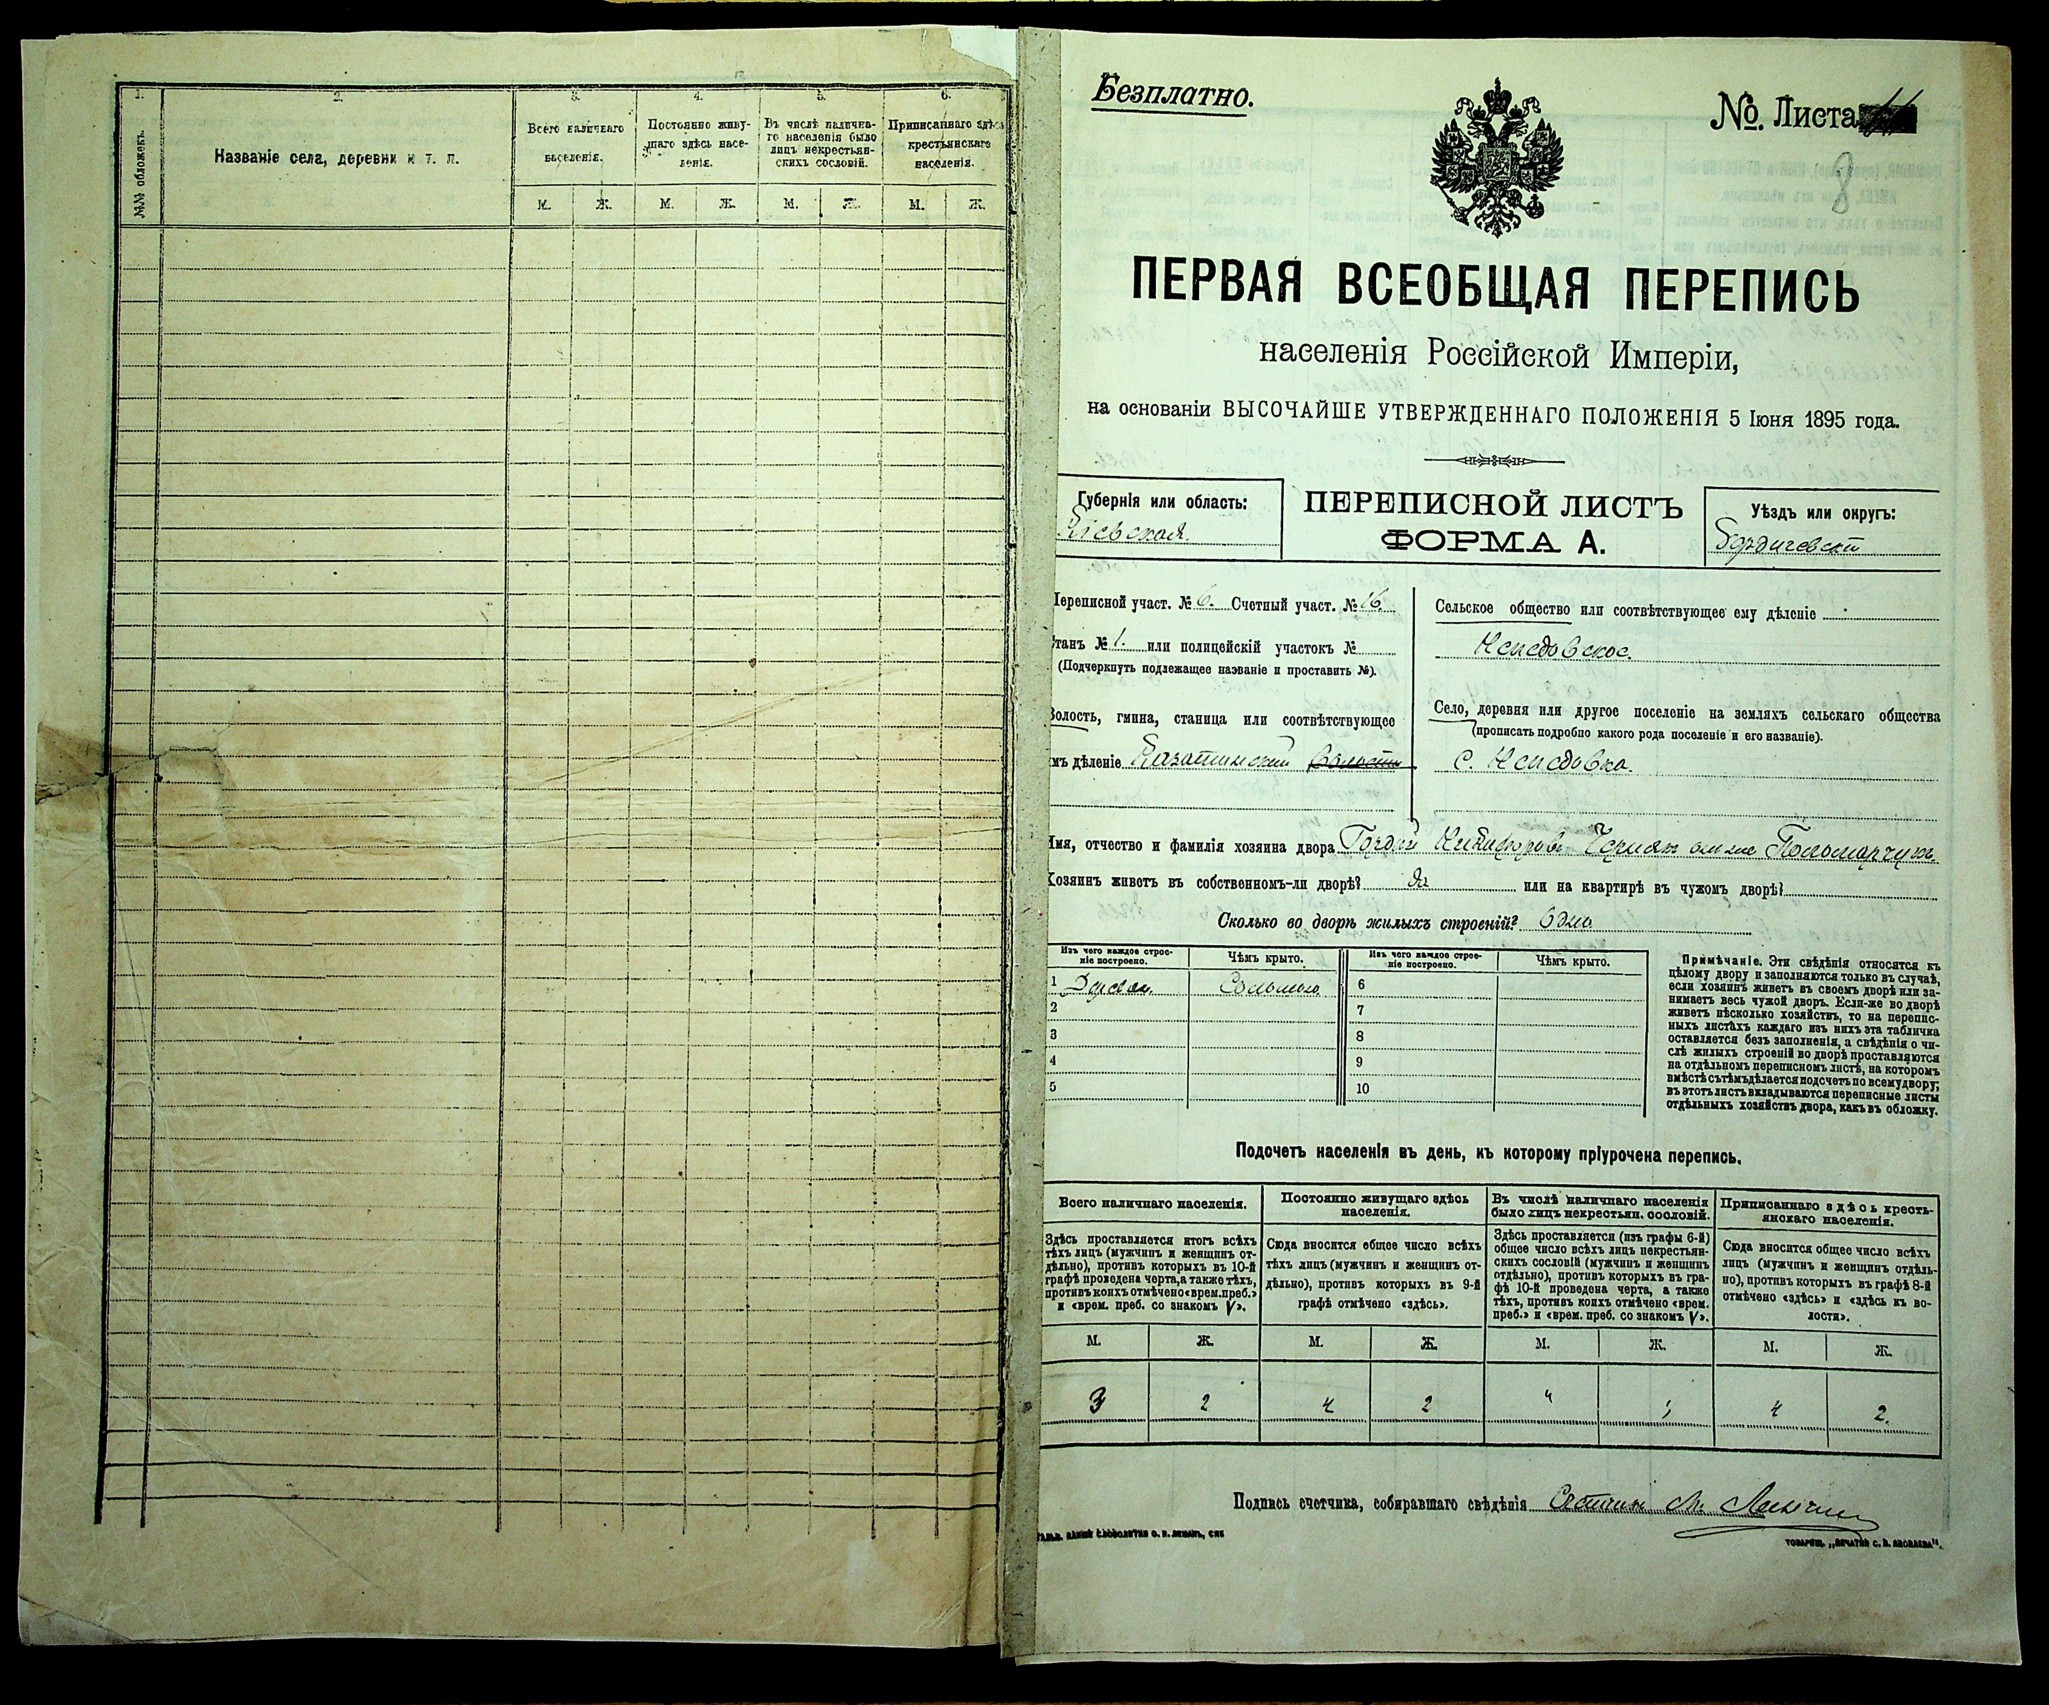 1.
2.
3.
4.
5.
6.
№№ обложекъ.
Названіе села, деревни и т. п.
Всего наличнаго населенія.
Постоянно живущаго здѣсь населенія.
Въ числѣ налична-
го населенія было
лицъ некрестьян-
скихъ сословій.
Приписаннаго здѣсь
крестьянскаго
населенія.
М. Ж. М. Ж. М. Ж. М. Ж.
Безплатно.
№ Листа
8
ПЕРВАЯ ВСЕОБЩАЯ ПЕРЕПИСЬ
населенія Россійской Имперіи,
на основаніи ВЫСОЧАЙШЕ УТВЕРЖДЕННАГО ПОЛОЖЕНІЯ 5 Іюня 1895 года.
Губернія или область:
Кіевская
ПЕРЕПИСНОЙ ЛИСТЪ
ФОРМА А.
Уѣздъ или округъ:
Бердичевскій
Переписной участ. № 6. Счетный участ. № 16.
Станъ № 1. или полицейскій участокъ №
(Подчеркнуть подлежащее названіе и проставить №).
Волость, гмина, станица или соотвѣтствующее
имъ дѣленіе Казатинской
Сельское общество или соотвѣтствующее ему дѣленіе
Село, деревня или другое поселеніе на земляхъ сельскаго общества
(прописать подробно какого рода поселеніе и его названіе).
с.
Имя, отчество и фамилія хозяина двора Гордій Никифоровъ Пономарчукъ.
Хозяинъ живетъ въ собственномъ-ли дворѣ? да или на квартирѣ въ чужомъ дворѣ?
Сколько во дворѣ жилыхъ строеній? Одно
Изъ чего каждое строе-
ніе построено.
Чѣмъ крыто.
Изъ чего каждое строе-
ніе построено.
Чѣмъ крыто.
1 Дерева. Соломою. 6
2 7
3 8
4 9
5 10
Примѣчаніе. Эти свѣдѣнія относятся къ
цѣлому двору и заполняются только въ случаѣ,
если хозяинъ живетъ въ своемъ дворѣ или за-
нимаетъ весь чужой дворъ. Если-же во дворѣ
живетъ нѣсколько хозяйствъ, то на перепис-
ныхъ листахъ каждаго изъ нихъ эта табличка
оставляется безъ заполненія, а свѣдѣнія о чи-
слѣ жилыхъ строеній во дворѣ проставляются
на отдѣльномъ переписномъ листѣ, на которомъ
вмѣстѣ съ тѣмъ дѣлается подсчетъ по всему двору;
въ этотъ листъ вкладываются переписные листы
отдѣльныхъ хозяйствъ двора, какъ въ обложку.
Подсчетъ населенія въ день, къ которому пріурочена перепись.
Всего наличнаго населенія.
Постоянно живущаго здѣсь
населенія.
Въ числѣ наличнаго населенія
было лицъ некрестьян. сословій.
Приписаннаго здѣсь кресть-
янскаго населенія.
Здѣсь проставляется итогъ всѣхъ
тѣхъ лицъ (мужчинъ и женщинъ от-
дѣльно), противъ которыхъ въ 10-й
графѣ проведена черта, а также тѣхъ,
противъ коихъ отмѣчено «врем. преб.»
и «врем. преб. со знакомъ V».
Сюда вносится общее число всѣхъ
тѣхъ лицъ (мужчинъ и женщинъ от-
дѣльно), противъ которыхъ въ 9-й
графѣ отмѣчено «здѣсь».
Здѣсь проставляется (изъ графы 6-й)
общее число всѣхъ лицъ некрестьян-
скихъ сословій (мужчинъ и женщинъ
отдѣльно), противъ которыхъ въ гра-
фѣ 10-й проведена черта, а также
тѣхъ, противъ коихъ отмѣчено «врем.
преб.» и «врем. преб. со знакомъ V».
Сюда вносится общее число всѣхъ
лицъ (мужчинъ и женщинъ отдѣль-
но), противъ которыхъ въ графѣ 8-й
отмѣчено «здѣсь» и «здѣсь къ во-
лости».
М. Ж. М. Ж. М. Ж. М. Ж.
3 2 4 2 " 4 2.
Подпись счетчика, собиравшаго свѣдѣнія
ТОВАРИЩ. „ПЕЧАТНЯ С. П. ЯКОВЛЕВА“.